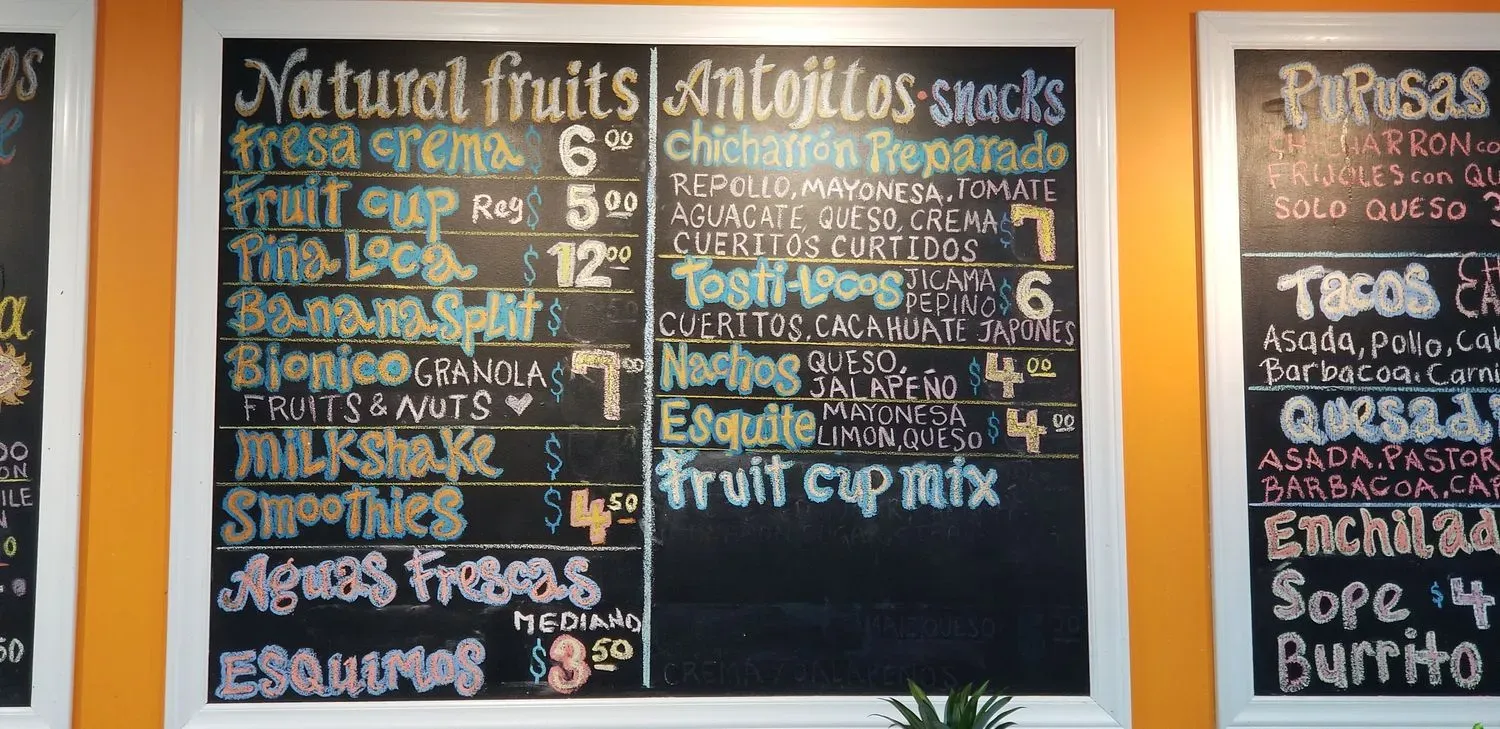 Natural fruits
Fresa crema $ 6 00
Fruit cup Reg $ 5 00
Piña Loca $ 12 00
Banana Split $
Bionico GRANOLA $ 7 00
FRUITS & NUTS ♥
Milkshake $
Smoothies $ 4 50
Aguas Frescas
MEDIANO
ESQUIMOS $ 3 50
Antojitos · snacks
chicharrón Preparado
REPOLLO, MAYONESA, TOMATE
AGUACATE, QUESO, CREMA $ 7
CUERITOS CURTIDOS
Tosti-Locos JICAMA
PEPINO $ 6
CUERITOS, CACAHUATE JAPONES
Nachos QUESO,
JALAPEÑO $ 4 00
Esquite MAYONESA
LIMON, QUESO $ 4 00
Fruit cup mix
MAIZ QUESO
CREMA Y JALAPEÑOS
PUPUSAS
CHICHARRON
FRIJOLES con
SOLO QUESO
TACOS
Asada, Pollo,
Barbacoa,
ASADA, PASTOR
BARBACOA,
Sope $ 4
Burrito